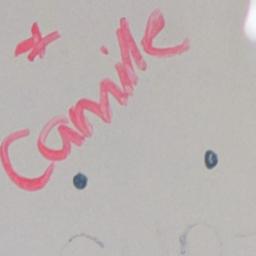 *
Camille